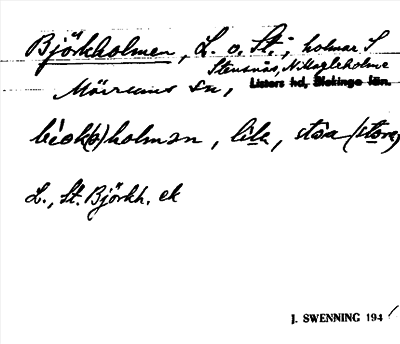 Björkholmen, L. o. St., holmar S
Stensnäs, N Hagleholme
Mörrums sn, Listers hd, Blekinge län.
bi̯ørk(ə)holmən, lila, stòra (stora)
L., St. Björkh. ek
J. SWENNING 194